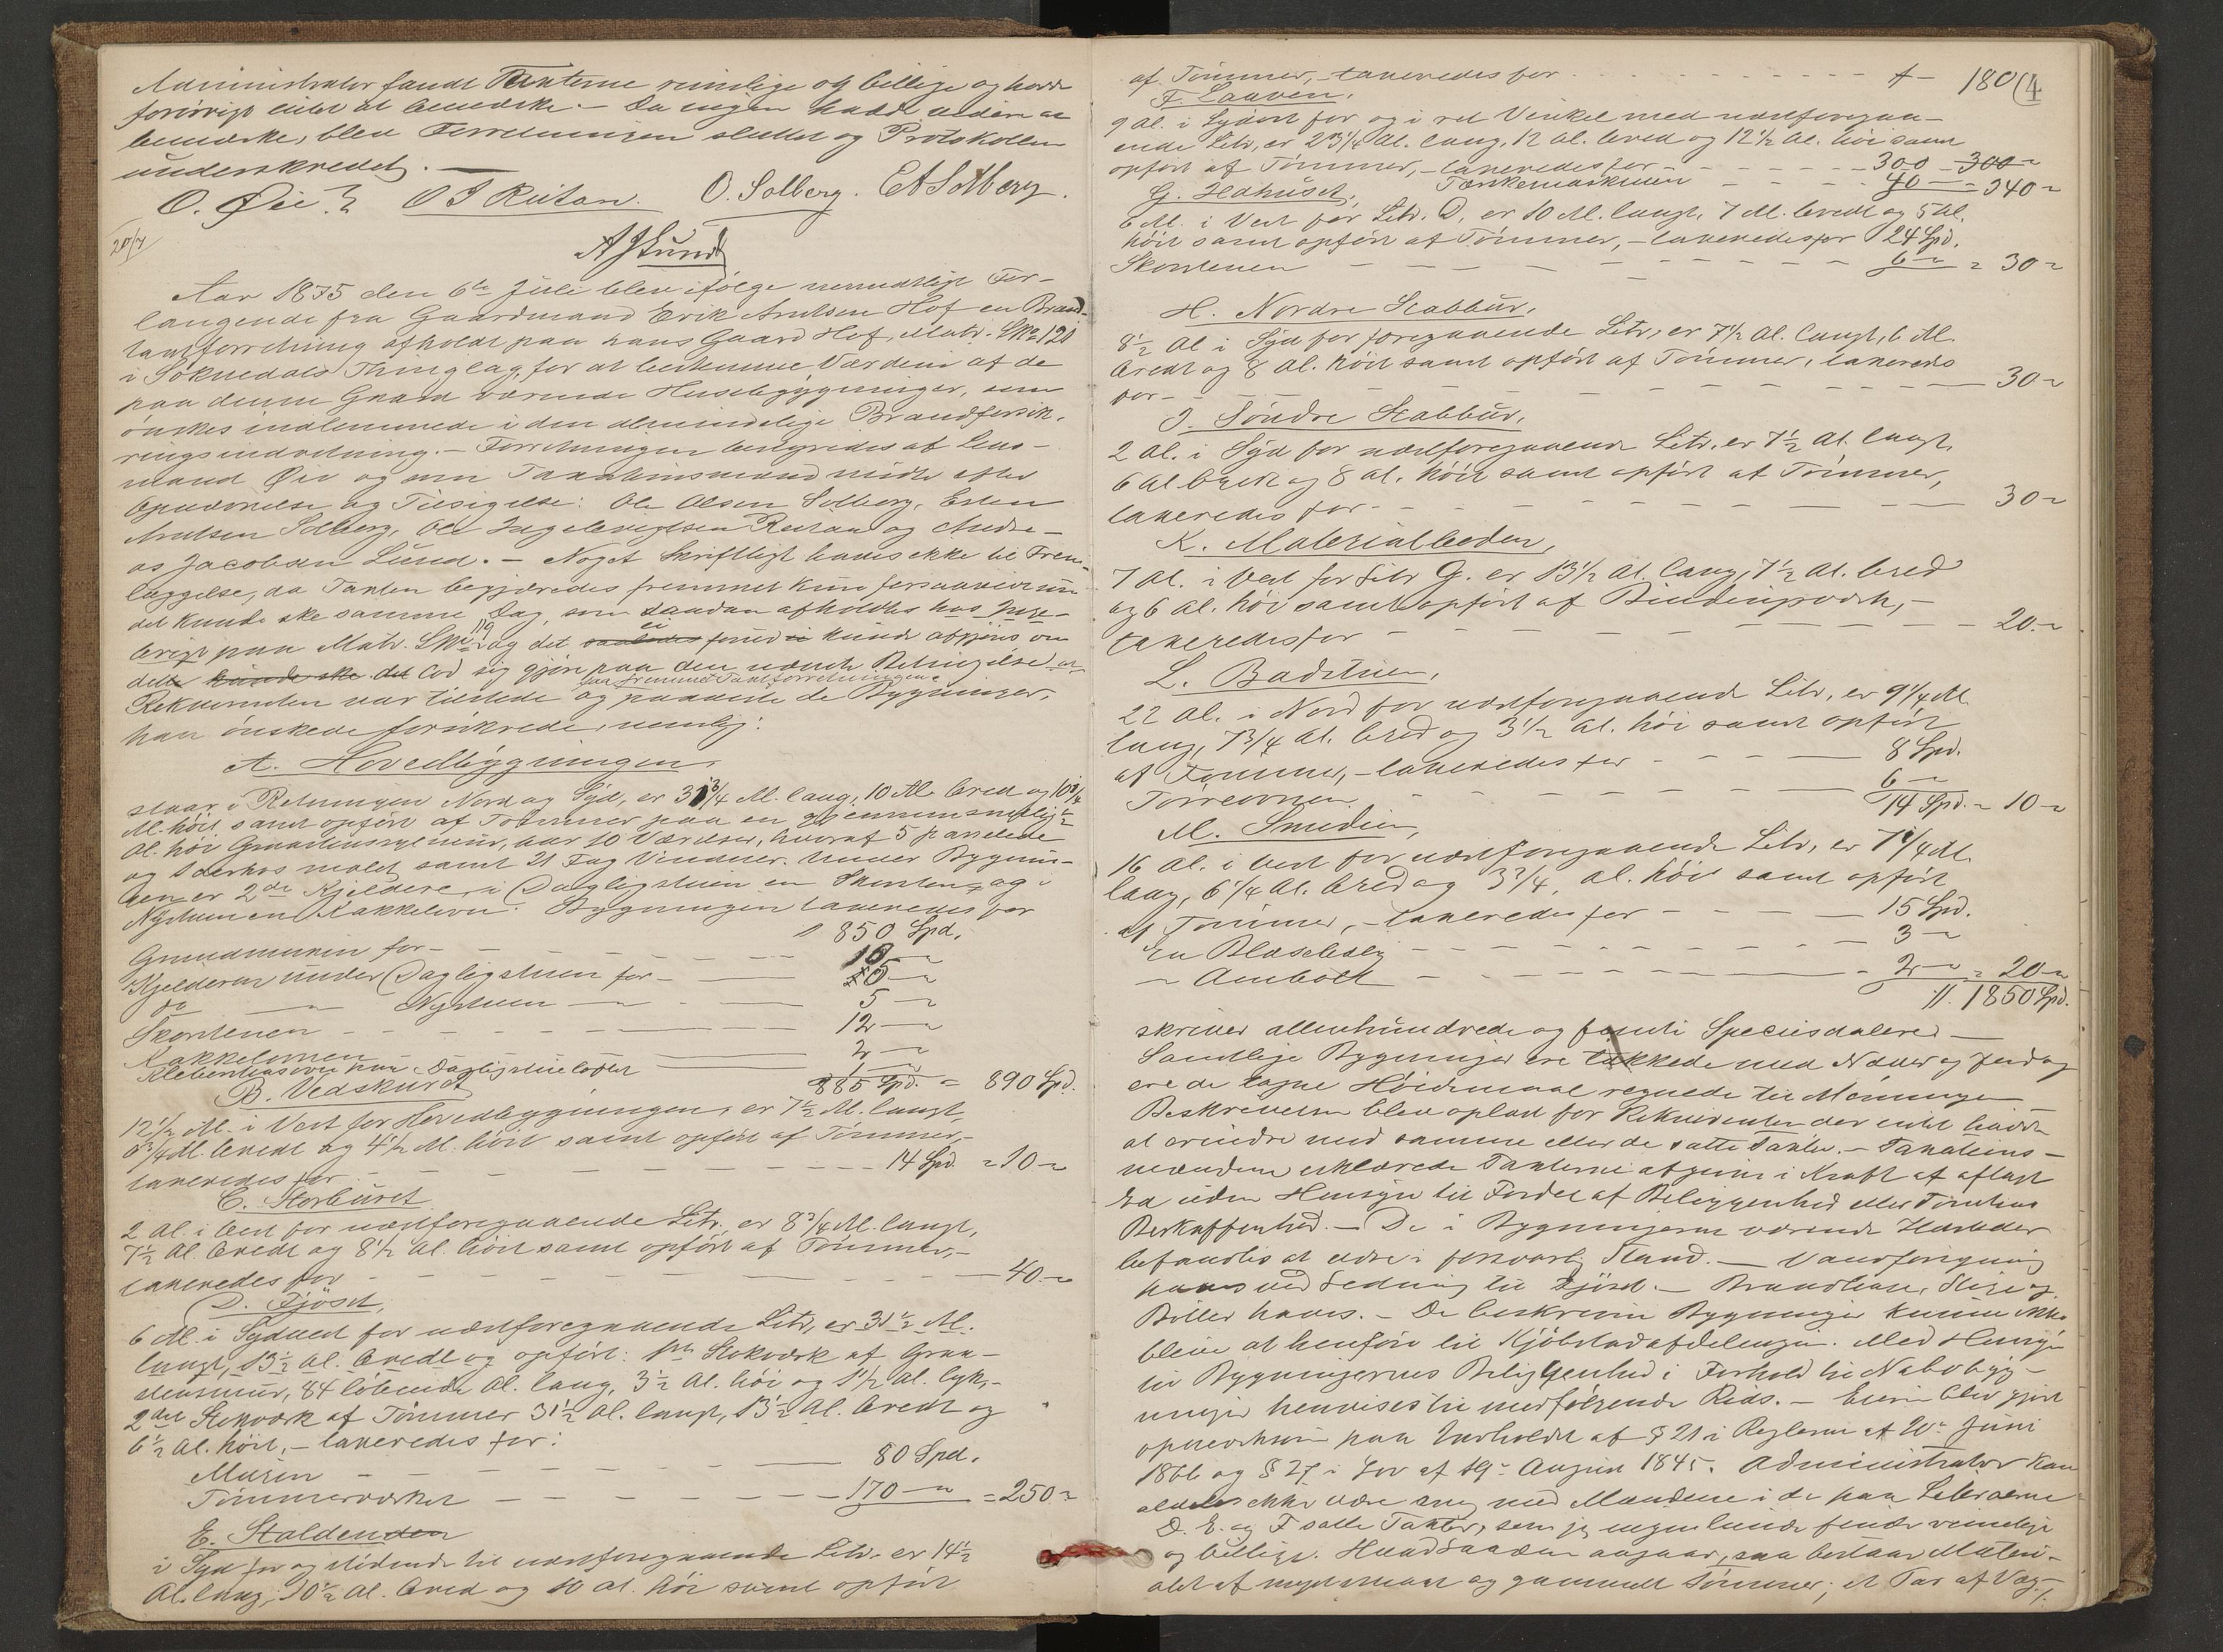 Administrator fandt Taxterne rimelige og billige og havde
forövrigt intet at bemærke. – Da ingen havde videre at
bemærke, blev Forretningen sluttet og Protokollen
underskrevet. —
O. Øie O I Reitan. O. Solberg. E A Solberg.
20/7
A J Lund
Aar 1875 den 6te Juli blev ifölge mundtlige For-
langende fra Gaardmand Erik Arntsen Hof en Brand-
taxtforretning afholdt paa hans Gaard Hof, Matr. LNo 120
i Soknedals Thinglag, for at bestemme Værdien af de
paa denne Gaard værende Husebygninger, som
önskes indlemmede i den almindelige Brandforsik-
ringsindretning. – Forretningen bestyredes af Lens-
mand Øie og som Taxationsmænd mödte efter
Opnævnelse og Tilsigelse: Ole Olsen Solberg, Esten
Arntsen Solberg, Ole Ingebrigtsen Reitan og Andre-
as Jacobsen Lund. – Noget Skriftligt havdes ikke til Frem-
læggelse, da Taxten begjæredes fremmet kun forsaavidt
det kunde ske samme Dag, som saadan afholdtes hos Inge-
brigt paa Matr. LNo 119 og det ei kunde afgjöres om
dette kunde ske det lod sig gjöre paa den Betingelse at
paa fremmet Taxtforretningen.
Rekvirenten var tilstede og paaviste de Bygninger,
han önskede forsikrede, nemlig:
A. Hovedbygningen,
staar i Retningen Nord og Syd, er 31 3/4 Al. lang, 10 Al. bred og 10 1/4
Al. höi samt opfört af Tömmer paa en gjennemsnitlig 1/2
Al. höi Graastensgrundmur, har 10 Værelser, hvoraf 5 panelede
og 1 derhos malet samt 21 Fag Vinduer. Under Bygnin-
gen er 2de Kjeldere, i Dagligstuen en Skorsten, og i
Nystuen en Kakkelovn. Bygningen taxeredes for
850 Spd.
Grundmuren for – – – 10 – "
Kjelderen under Dagligstuen for – 5 – "
do — Nystuen — 5 – "
Skorstenen – – – 12 – "
Kakkelovnen – 2 – "
Klebersteensovn paa Dagligstueloftet 1 – "
885 Spd. = 890 Spd.
B. Vedskuret
12 1/2 Al. i Vest for Hovedbygningen, er 7 1/2 Al. langt,
6 3/4 Al. bredt og 4 1/2 Al. höit samt opfört af Tömmer, –
taxeredes for – – – 14 Spd. = 10 – "
C. Storburet
2 Al. i Vest for næstforegaaende Litr. er 8 3/4 Al. langt,
7 1/2 Al. bredt og 8 1/2 Al. höit samt opfört af Tömmer, –
taxeredes for – – – 40. – "
D. Fjöset,
6 Al. i Sydvest for næstforegaaende Litr., er 31 1/2 Al.
langt, 13 1/2 Al. bredt og opfört: 1ste Stokværk af Graa-
stensmur, 84 löbende Al. lang, 3 1/2 Al. höi og 1 1/2 Al. tyk, –
2det Stokværk af Tömmer 31 1/2 Al. langt, 13 1/2 Al. bredt og
6 1/2 Al. höit, – taxeredes for:
Muren – – – 80 Spd.
Tömmerværket – – – 170 – " = 250 "
E. Stalden
i Syd for og stödende til næstforegaaende Litr. er 14 1/2
Al. lang, 10 1/2 Al. bred og 10 Al. höi samt opfört
af Tömmer, – taxeredes for – – –
180 (4
F. Laaven,
9 Al. i Sydost for og i ret Vinkel med næstforegaa-
ende Litr., er 23 1/4 Al. lang, 12 Al. bred og 12 1/2 Al. höi samt
opfört af Tömmer, – taxeredes for – – 300 – 300 "
Tærskemaskinen – – 40 – " = 340 "
G. Ildhuset,
6 Al. i Vest for Litr. D, er 10 Al. langt, 7 Al. bredt og 5 Al.
höit samt opfört af Tömmer, – taxeredes for 24 Spd.
Skorstenen – – – 6 – " = 30 "
H. Nordre Stabbur,
8 1/2 Al. i Syd for foregaaende Litr., er 7 1/2 Al. langt, 6 Al.
bredt og 8 Al. höit samt opfört af Tömmer, taxeredes
for – – – 30 "
I. Söndre Stabbur,
2 Al. i Syd for næstforegaaende Litr. er 7 1/2 Al. langt,
6 Al. bredt og 8 Al. höit samt opfört af Tömmer,
taxeredes for – – – 30 "
K. Materialboden,
7 Al. i Vest for Litr G. er 13 1/2 Al. lang, 7 1/2 Al. bred
og 6 Al. höi samt opfört af Bindingsværk, –
taxeredes for – – – 20. "
L. Badstuen,
22 Al. i Nord for næstforegaaende Litr., er 9 1/4 Al.
lang, 7 3/4 Al. bred og 3 1/2 Al. höi samt opfört
af Tömmer, – taxeredes for – – 8 Spd.
Törreovnen – – 6 – "
14 Spd. = 10 "
M. Smedien,
16 Al. i Vest for næstforegaaende Litr., er 7 1/4 Al.
lang, 6 1/4 Al. bred og 3 3/4 Al. höi samt opfört
af Tömmer, – taxeredes for – – 15 Spd.
En Blæsebelg – – 3 – "
" Ambolt – – 2 – " = 20 "
1850 Spd.
skriver attenhundrede og femti Speciesdalere –
Samtlige Bygninger ere tækkede med Næver og Jord og
ere de tagne Höidemaal regnede til Möningen
Beskrivelsen blev oplæst for Rekvirenten der intet havde
at erindre mod samme eller de satte Taxter. – Taxations-
mændene erklærede Taxterne afgivne i Kraft af aflagt
Ed uden Hensyn til Fordel af Beliggenhed eller Tomtens
Beskaffenhed. – De i Bygningerne værende Ildsteder
befandtes at være i forsvarlig Stand. — Vandforsyning
haves ved Ledning til Fjöset. – Brandhage, Stige og
Bötter haves. – De beskrevne Bygninger kunne ikke
blive at henföre til Kjöbstadafdelingen. Med Hensyn
til Bygningernes Beliggenhed i Forhold til Nabobyg-
ninger henvises til medfölgende Rids. – Eieren blev gjort
opmærksom paa Indholdet af § 21 i Reglerne af 20de Juni
1866 og § 27 i Lov af 19de August 1845. Administrator kan
aldeles ikke være enig med Mændene i de paa Litraerne
D. E. og F satte Taxter, som jeg ingenlunde finder rimelige
og billige. Hvad Laaven angaar, saa bestaar Materi-
alet af meget smaat og gammelt Tömmer; et Par af Væg-